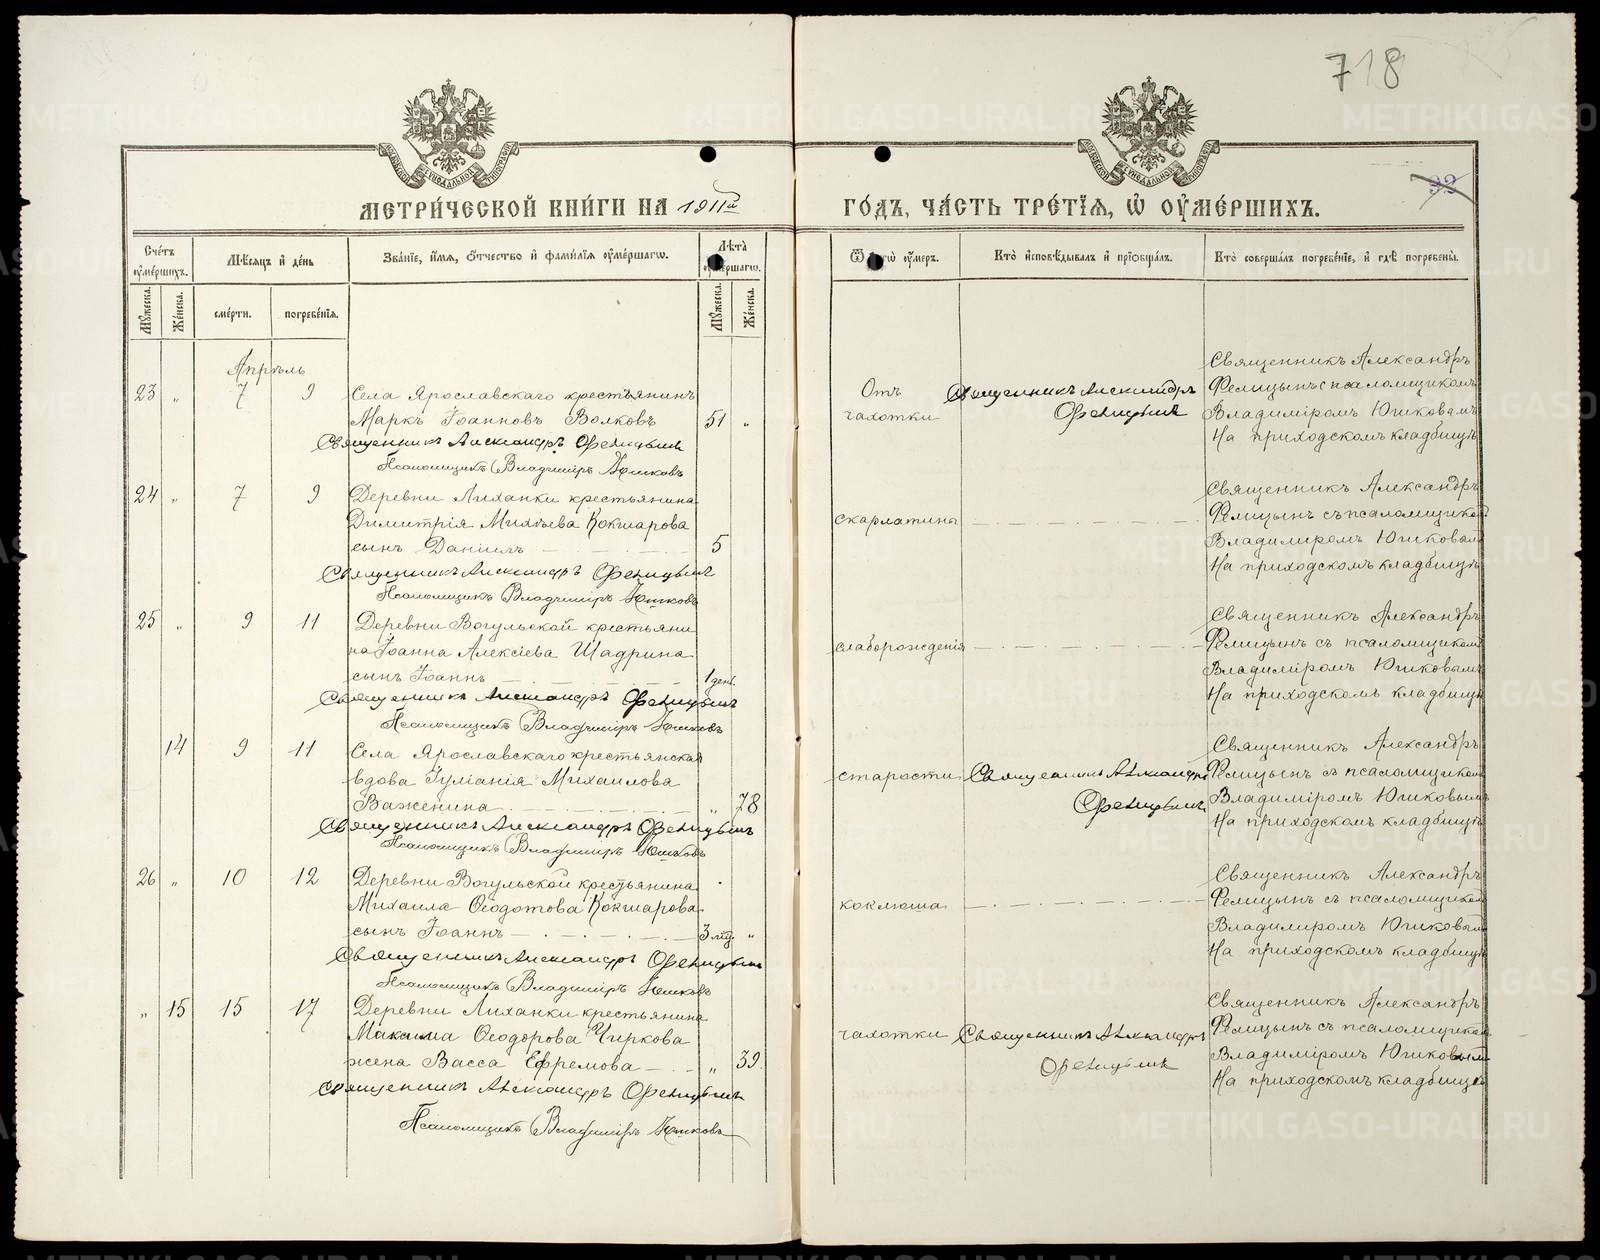 718
99
МЕТРИ́ЧЕСКОЙ КНИ́ГИ НА 1911й
ГО́ДЪ, ЧА́СТЬ ТРЕ́ТIѦ, Ѡ҆ ОУ҆МЕ́РШИХЪ.
Сче́тъ оу҆ме́ршихъ.
Мꙋ́жеска.
Же́нска.
Мѣ́сѧцъ и҆ де́нь
сме́рти.
погребе́нїѧ.
Зва́нїе, и҆́мѧ, ѻ҆́тчество и҆ фами́лїѧ оу҆ме́ршагѡ.
Лѣ́та оу҆ме́ршагѡ.
Мꙋ́жеска.
Же́нска.
Ѿ чегѡ̀ оу҆́меръ.
Кто̀ и҆сповѣ́дывалъ и҆ прїѡбща́лъ.
Кто̀ соверша́лъ погребе́нїе, и҆ гдѣ̀ погребе́ны.
Апрѣль
23 „ 7 9
Села Ярославскаго крестьянинъ
Маркъ Іоанновъ Волковъ 51 „
Священникъ Александръ Фелицынъ
Псаломщикъ Владиміръ Юшковъ
Отъ
чахотки
Священникъ Александръ
Фелицынъ
Священникъ Александръ
Фелицынъ съ псаломщикомъ
Владиміромъ Юшковымъ
На приходскомъ кладбищѣ
24 „ 7 9
Деревни Лиханки крестьянина
Димитрія Михѣева Кокшарова
сынъ Даніилъ 5
Священникъ Александръ Фелицынъ
Псаломщикъ Владиміръ Юшковъ
скарлатины
Священникъ Александръ
Фелицынъ съ псаломщикомъ
Владиміромъ Юшковымъ
На приходскомъ кладбищѣ
25 „ 9 11
Деревни Вогульской крестьяни
на Іоанна Алексіева Шадрина
сынъ Іоаннъ 1 ден.
Священникъ Александръ Фелицынъ
Псаломщикъ Владиміръ Юшковъ
слаборожденія
Священникъ Александръ
Фелицынъ съ псаломщикомъ
Владиміромъ Юшковымъ
На приходскомъ кладбищѣ
14 9 11
Села Ярославскаго крестьянская
вдова Іуліанія Михаилова
Важенина „ 78
Священникъ Александръ Фелицынъ
Псаломщикъ Владиміръ Юшковъ
старости
Священникъ Александръ
Фелицынъ
Священникъ Александръ
Фелицынъ съ псаломщикомъ
Владиміромъ Юшковымъ
На приходскомъ кладбищѣ
26 „ 10 12
Деревни Вогульской крестьянина
Михаила Ѳеодотова Кокшарова
сынъ Іоаннъ 3 мц. „
Священникъ Александръ Фелицынъ
Псаломщикъ Владиміръ Юшковъ
коклюша
Священникъ Александръ
Фелицынъ съ псаломщикомъ
Владиміромъ Юшковымъ
На приходскомъ кладбищѣ
„ 15 15 17
Деревни Лиханки крестьянина
Максима Ѳеодорова Чиркова
жена Васса Ефремова „ 39.
Священникъ Александръ Фелицынъ
Псаломщикъ Владиміръ Юшковъ
чахотки
Священникъ Александръ
Фелицынъ
Священникъ Александръ
Фелицынъ съ псаломщикомъ
Владиміромъ Юшковымъ
На приходскомъ кладбищѣ
METRIKI.GASO-URAL.RU